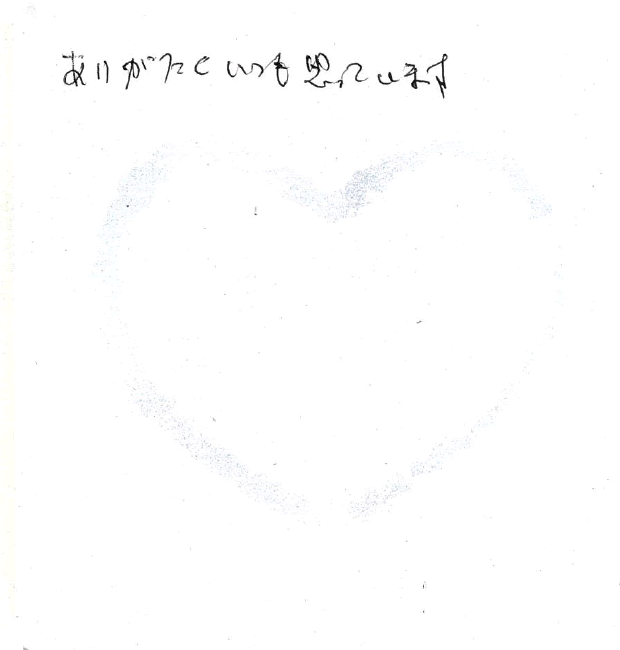 ありがたくいつも思っています